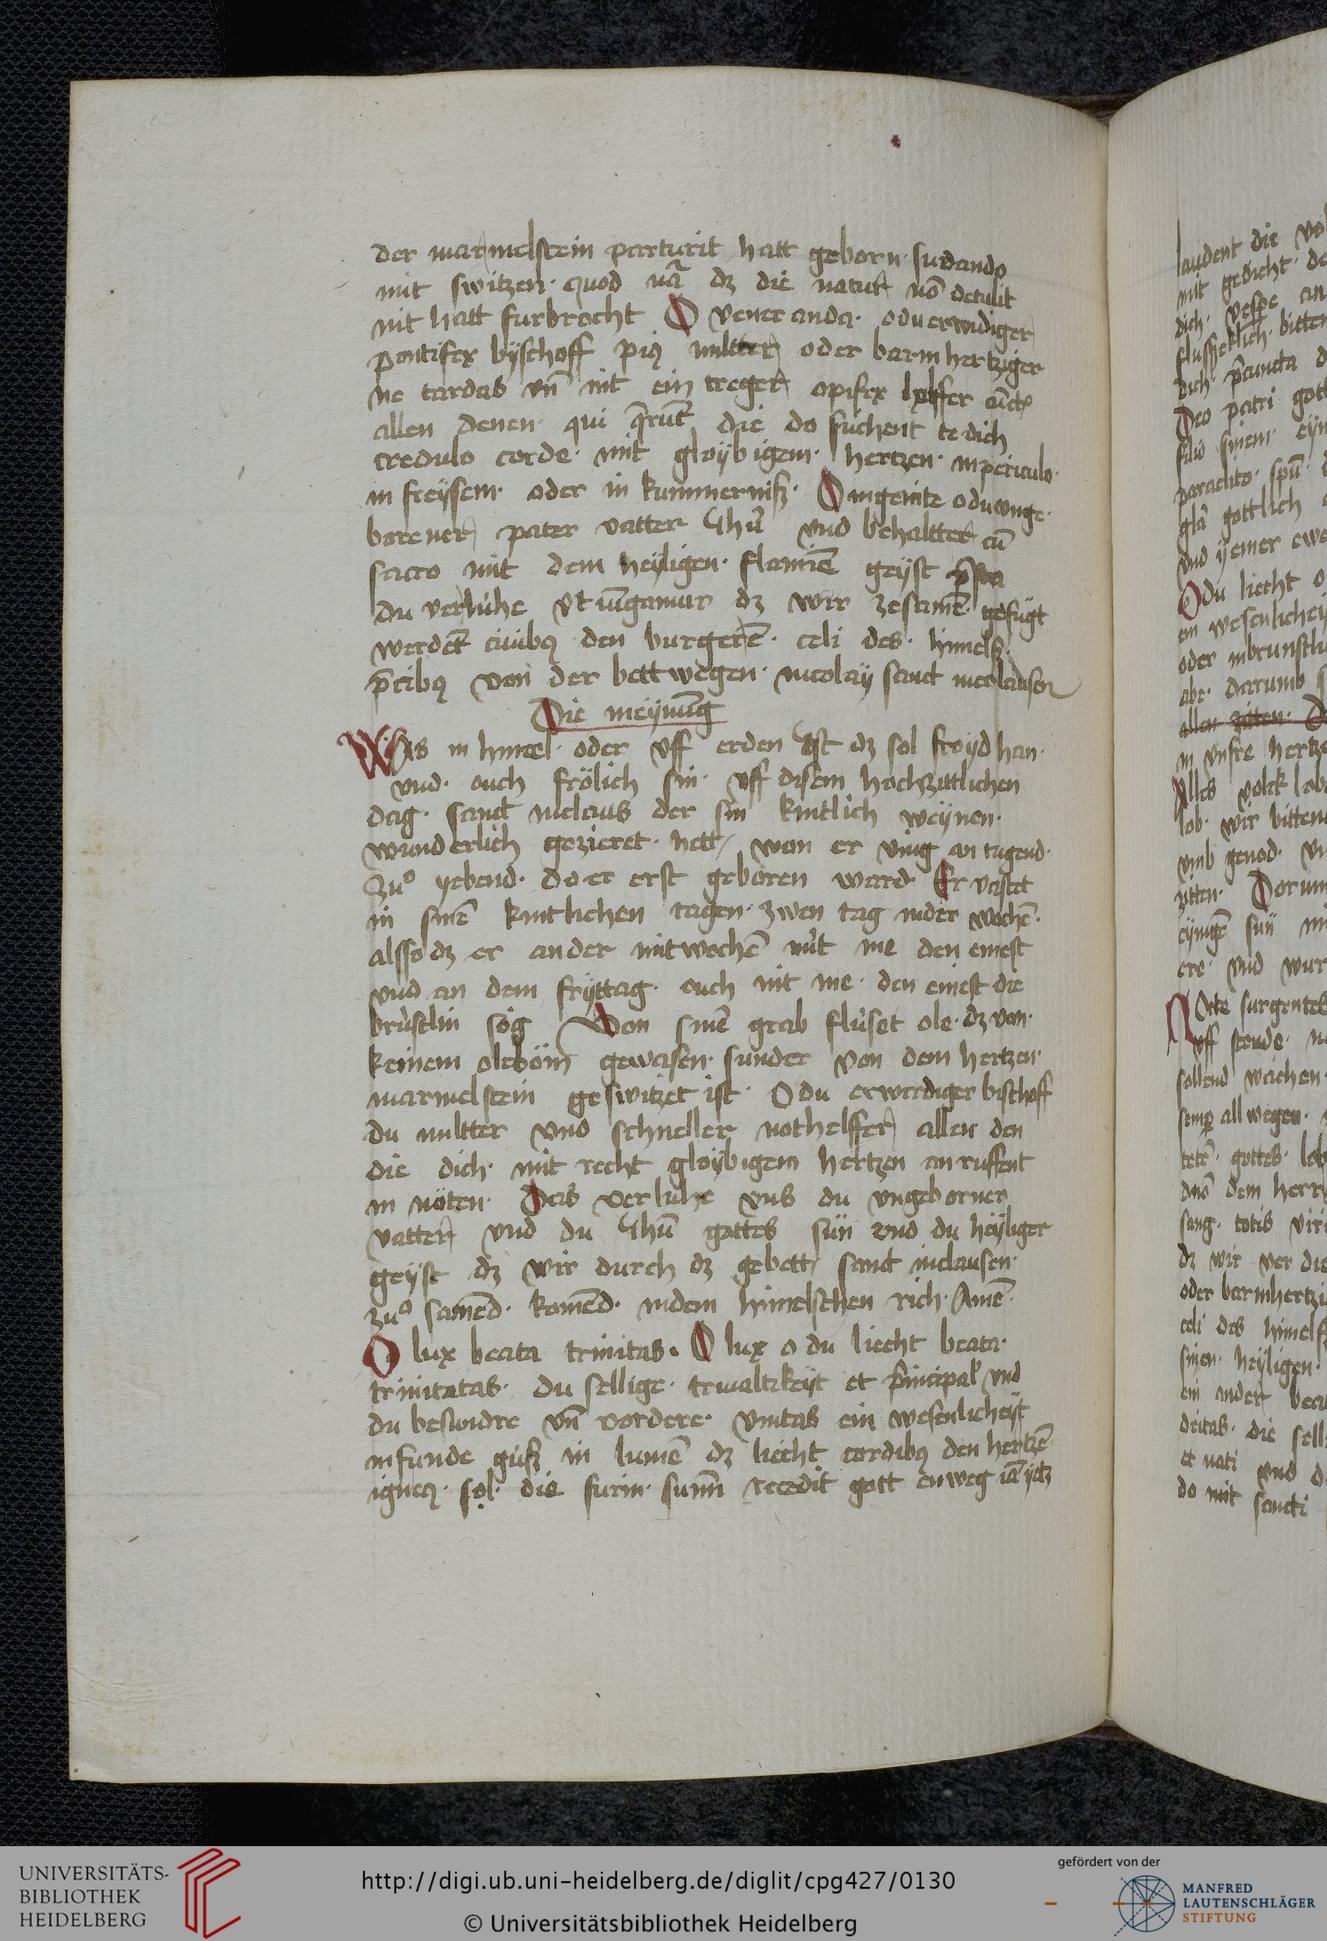 der marmelstein parturit hatt geborn · sudando
mit switzen · quod nā dz die natur nō detulit
nit hatt furbrocht O veneranda · o du erwirdiger
pontifex byschoff piꝰ miltter oder barmhertziger
ne tardas vn̄ nit ein treger opifex helffer
allen denen · qui q̄rūt die do suchent te dich
credulo corde · mit gloybigem · hertzen · in periculo ·
in freyssem · oder in kummerniß · O ingenite o du unge ·
borener pater vatter ihū und behaltter cū
sacro mit dem heyligen · flamīe geyst p̄sta
du verluhe vt iūgamur dz wir zesamē gefugt
werdēt ciuibꝰ den burgerē · celi des · himels ·
p̄cibꝰ von der bett wegen · nicolay sanct nicolausen
Die meynūg
Was in himel · oder vff erden ist dz sol froyd han ·
vnd · ouch frölich sin · vff disem hochzittlichen
dag · sanct niclaus der sin kintlich weynen ·
wunderlich gezieret · hett won er vnig an tugend ·
Zuͦ nebend · do er erst geboren ward Er vastet
in sinē kintlichen tagen · zwen tag in der wochē ·
alsso dz er an der mitwochē nut me den einest
vnd an dem fryttag · ouch nit me · den einest die
brustlin sög Von sinē grab fluset ole · dz von ·
keinem oleböm gewasen · sunder von dem hertzen ·
marmelstein geswitzet ist · O du erwirdiger bischoff
du miltter vnd schneller nothelffer allen den
die dich · mit recht gloybigem hertzen an ruffent
in nöten · Das verluhe vns du vngeborner
vatter vnd du ihū gottes sun vnd du heyliger
geyst dz wir durch dz gebett sanct niclausen ·
zuͦ samēd · komēd · in dem himelschen rich · Amē ·
O lux beata trinitas · O lux o du liecht beata ·
trinitatas · du sellige · triualtikeyt et p̄ncipal' vnd
du besundre vn̄ vordere · vnitas ein wesenlicheyt
infunde guß in lumē dz liecht cordibꝰ den hertzē
igneꝰ · sol · die furin · sunn recedit gott enweg iā yetz
laudent die
mit gedicht ·
dich · vesp̄e
flusseklich · bitten
dich · p̄cuncta
Deo patri gott
filio sinem ·
paraclito · spū ·
glā gottlich
vnd yemer ewe
O du liecht
ein wesenlichey
oder inbrunstli
abe · darumb
allen ziten ·
in vnsre hertze
Alles volck lob
lob · wir bitten
vmb genod ·
zitten · Dorum
eynigē sun
ere · vnd wur
Nocte surgentes
vff stende ·
sollend wachen
semꝑ all wegen ·
gottes · lob
dnō dem herr
sang · totis viri
dz wir
oder barmhertzi
celi des himels
sinen · heyligen ·
ein ander
deitas · die sell
et nati vnd
do mit sancti
UNIVERSITÄTS-
BIBLIOTHEK
HEIDELBERG
http://digi.ub.uni-heidelberg.de/diglit/cpg427/0130
© Universitätsbibliothek Heidelberg
gefördert von der
MANFRED
LAUTENSCHLÄGER
STIFTUNG